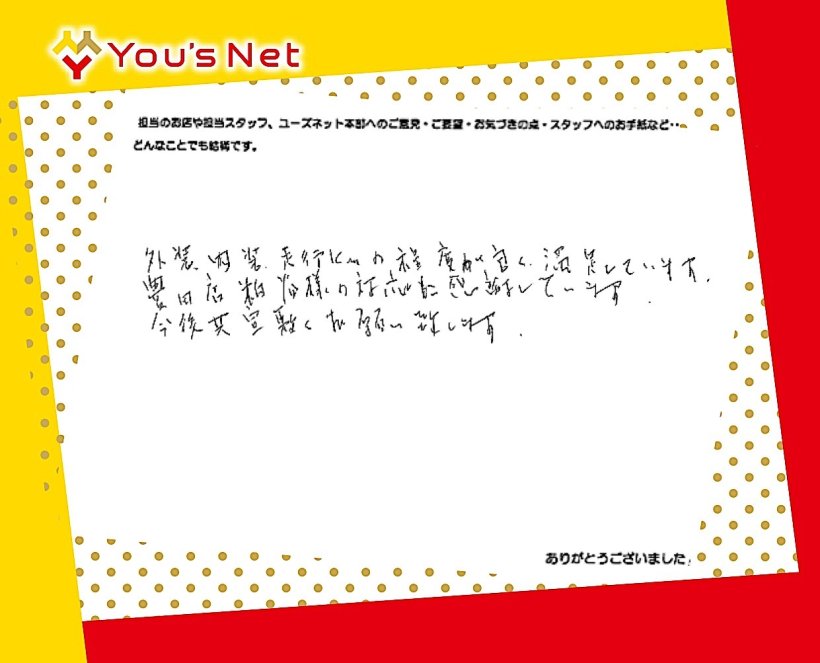 You's Net
担当のお店や担当スタッフ、ユーズネット本部へのご意見・ご要望・お気づきの点・スタッフへのお手紙など・・・
どんなことでも結構です。
外装、内装、走行kmの程度が良く満足しています。
豊田店 皆様の対応に感謝しています。
今後共宜敷くお願い致します。
ありがとうございました。